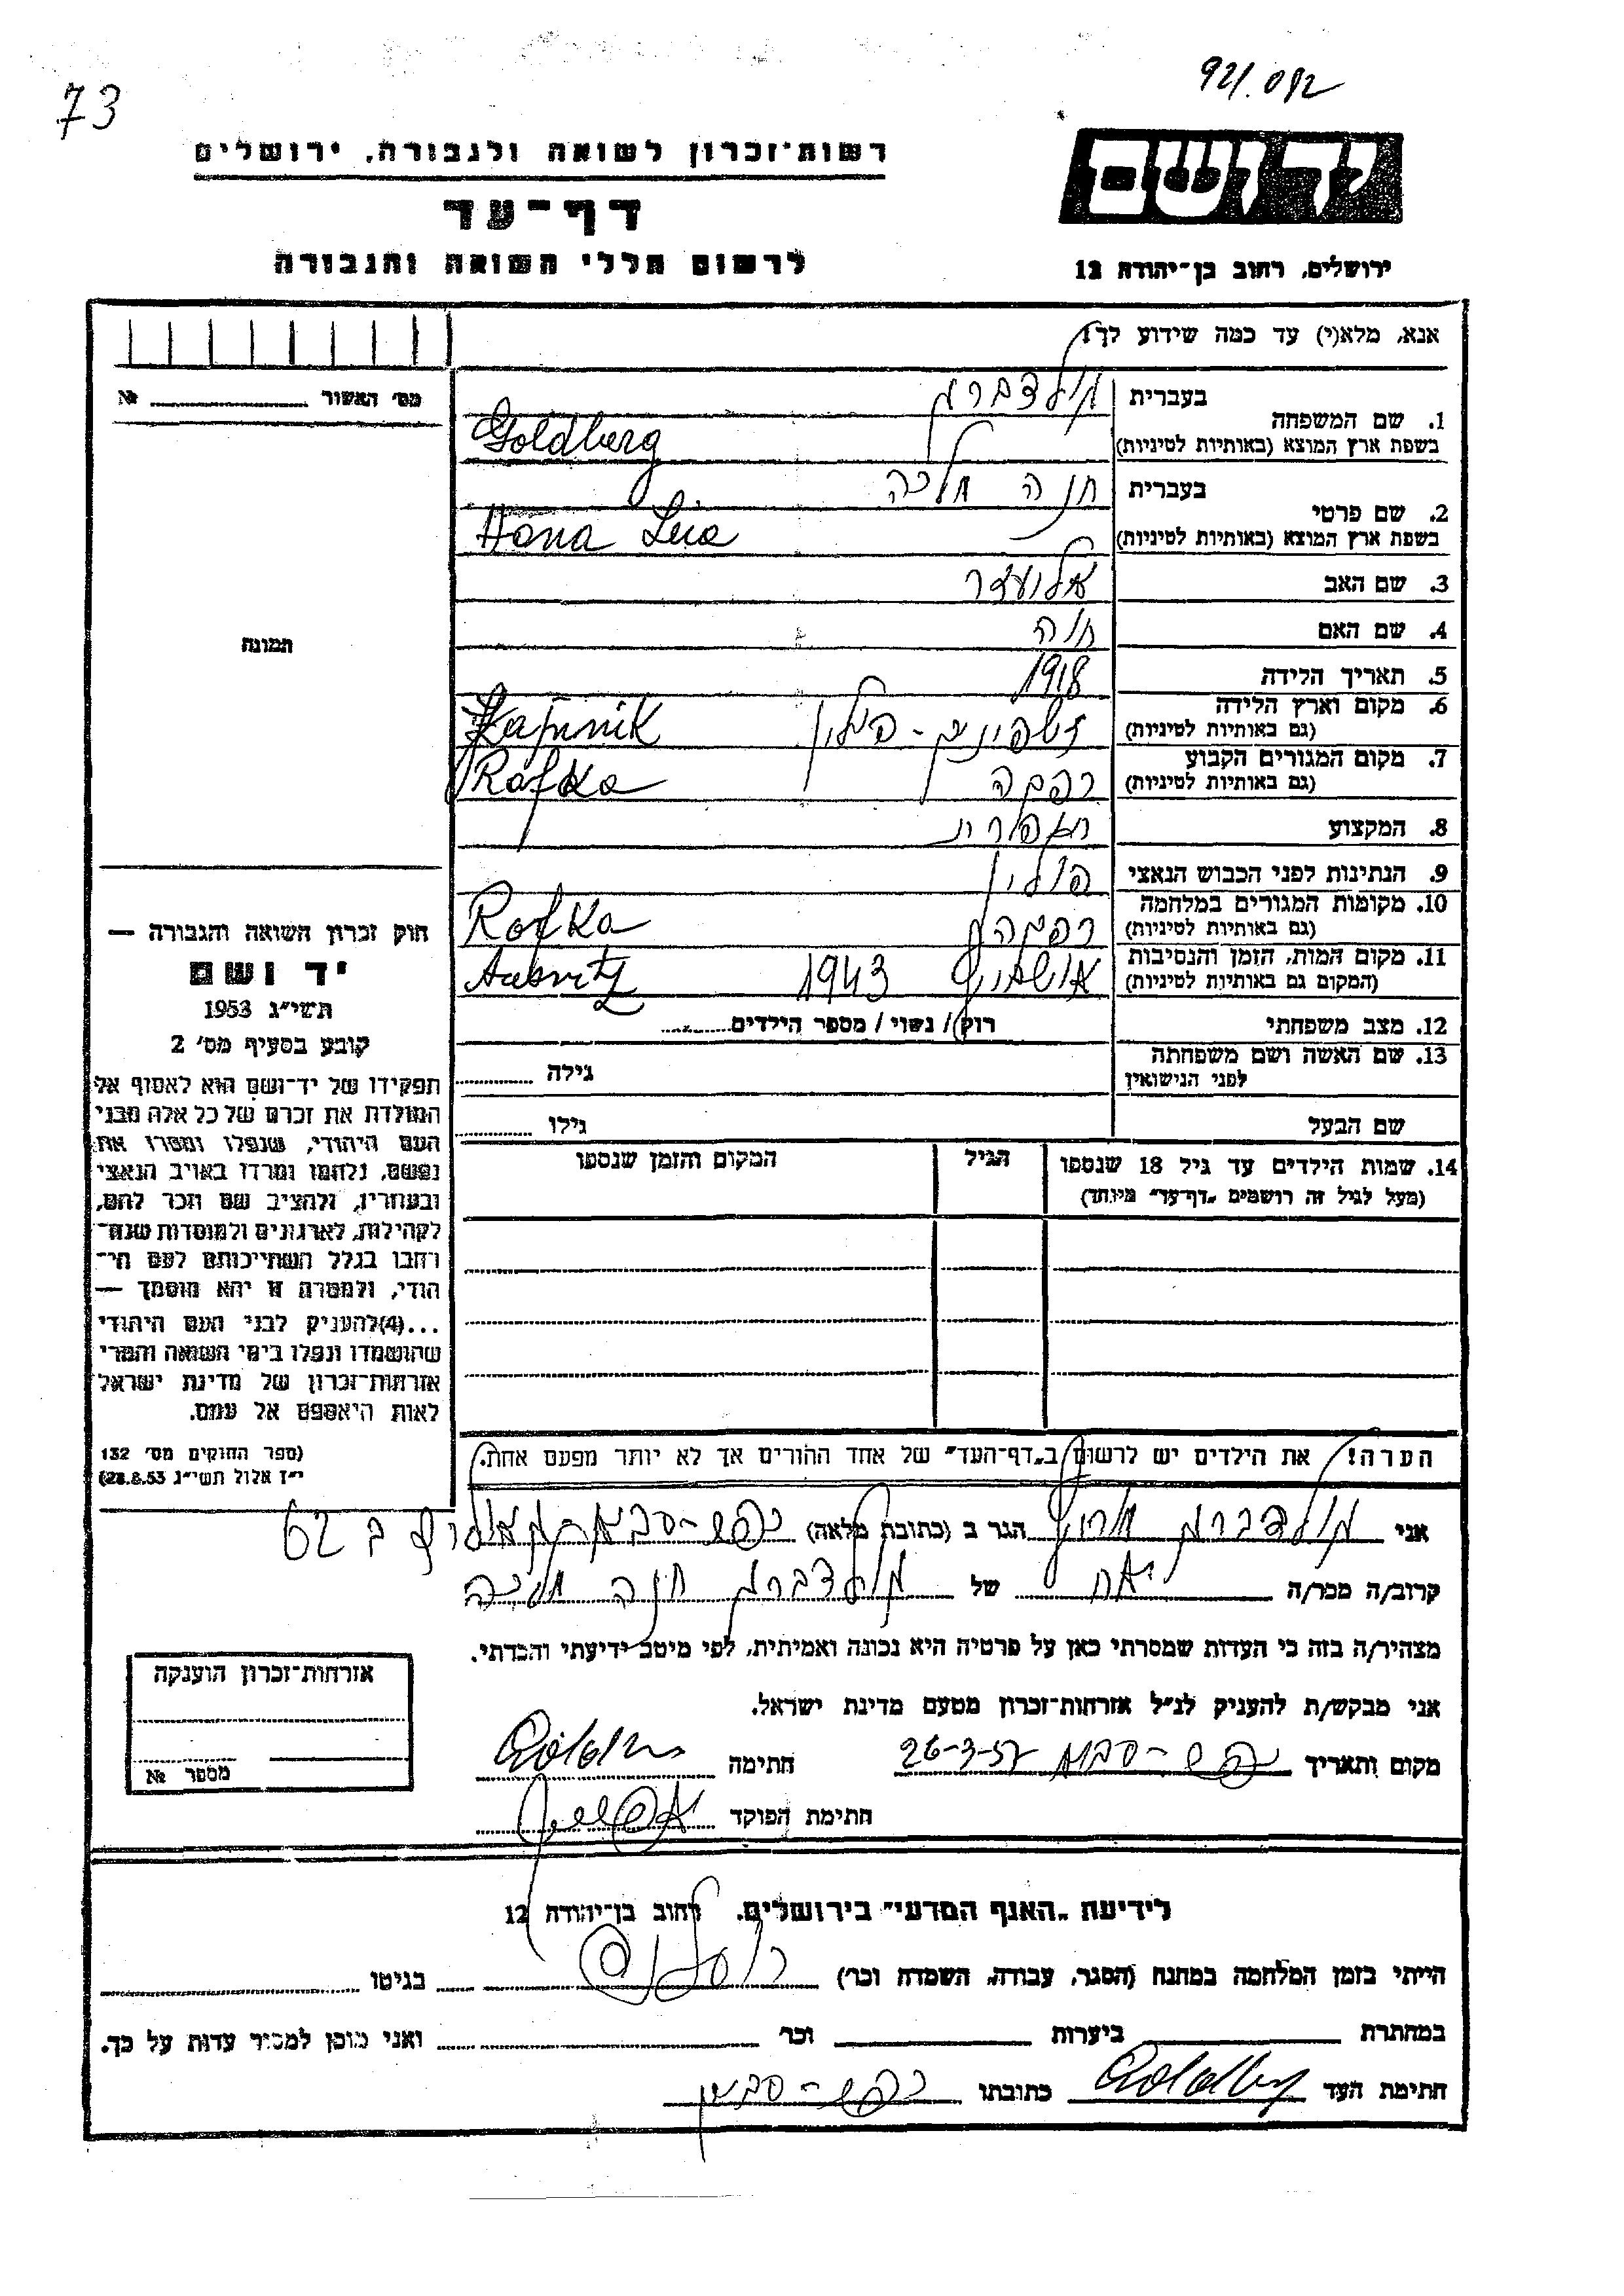 73
921.082
רשות-זכרון לשואה ולגבורה, ירושלים
יד ושם
דף-עד
לרשום חללי השואה והגבורה
ירושלים, רחוב בן-יהודה 12
אנא, מלא(י) עד כמה שידוע לך!
מס' האשור № 
1. שם המשפחה
בעברית גולדברג
בשפת ארץ המוצא (באותיות לטיניות) Goldberg
2. שם פרטי
בעברית חנה
בשפת ארץ המוצא (באותיות לטיניות) Hana Leia
3. שם האב
4. שם האם חוה
5. תאריך הלידה 1918
6. מקום וארץ הלידה
(גם באותיות לטיניות)
7. מקום המגורים הקבוע רפקה Rafka
(גם באותיות לטיניות)
8. המקצוע תופרת
9. הנתינות לפני הכבוש הנאצי פולין
10. מקומות המגורים במלחמה Rafka
(גם באותיות לטיניות)
11. מקום המות, הזמן והנסיבות 1943
(המקום גם באותיות לטיניות)
12. מצב משפחתי רוק / נשוי / מספר הילדים
13. שם האשה ושם משפחתה
לפני הנישואין גילה
שם הבעל גילו
14. שמות הילדים עד גיל 18 שנספו הגיל המקום והזמן שנספו
(מעל לגיל זה רושמים „דף-עד" מיוחד)
הערה! את הילדים יש לרשום ב„דף-העד" של אחד ההורים אך לא יותר מפעם אחת.
תמונה
חוק זכרון השואה והגבורה —
יד ושם
תשי"ג 1953
קובע בסעיף מס' 2
תפקידו של יד-ושם הוא לאסוף אל
המולדת את זכרם של כל אלה מבני
העם היהודי, שנפלו ומסרו את
נפשם, נלחמו ומרדו באויב הנאצי
ובעוזריו, ולהציב שם וזכר להם,
לקהילות, לארגונים ולמוסדות שנח-
רחבו בגלל השתייכותם לעם הי-
הודי, ולמטרה זו יהא מוסמך —
...(4)להעניק לבני העם היהודי
שהושמדו ונפלו בימי השואה והמרי
אזרחות-זכרון של מדינת ישראל
לאות היאספם אל עמם.
(ספר החוקים מס' 132
י"ז אלול תשי"ג 28.8.53)
אני גולדברג הגר ב (כתובת מלאה) כפר-סבא
קרוב/ה מכר/ה אח של גולדברג חנה
מצהיר/ה בזה כי העדות שמסרתי כאן על פרטיה היא נכונה ואמיתית, לפי מיטב ידיעתי והכרתי.
אני מבקש/ת להעניק לנ"ל אזרחות-זכרון מטעם מדינת ישראל.
מקום ותאריך כפר-סבא 26-3-57 חתימה
חתימת הפוקד
אזרחות-זכרון הוענקה
מספר №
לידיעת „האגף המדעי" בירושלים, רחוב בן-יהודה 12
הייתי בזמן המלחמה במחנה (הסגר, עבודה, השמדה וכו') בגיטו
במחתרת ביערות וכו' ואני מוכן למסור עדות על כך.
חתימת העד כתובתו כפר-סבא